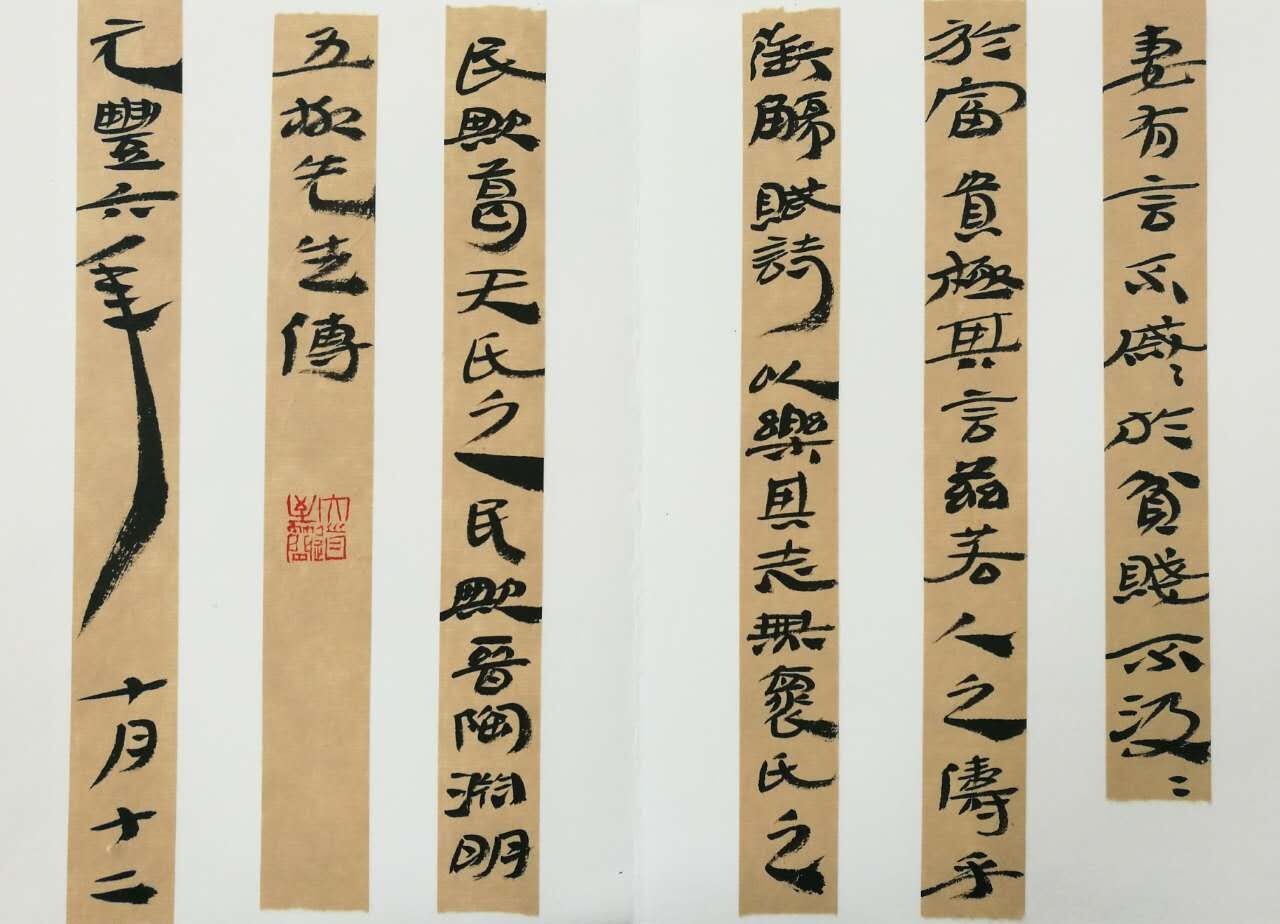 妻有言不慼〻於貧賤不汲〻
於富貴極其言茲若人之儔乎
銜觴賦詩以樂其志無褱氏之
民歟葛天氏之民歟晉陶淵明
五柳先生傳
元豐六年十月十二